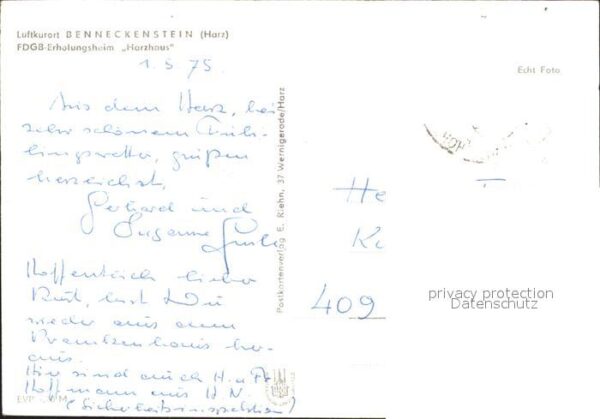 Luftkurort BENNECKENSTEIN (Harz)
FDGB-Erholungsheim „Harzhaus"
1.5.75.
Echt Foto
Aus dem Harz, bei
sehr schönem Früh-
lingswetter, grüßen
herzlichst,
Gerhard und
Susanne
Hoffentlich lieber
Kurt, bist Du
wieder aus dem
Krankenhaus her-
aus.
Hier sind auch H. u. Fr.
Hoffmann aus H.N.
(Sicherheitsinspektion)
Postkartenverlag E. Riehn, 37 Wernigerode/Harz
He
K
409
privacy protection
Datenschutz
EVP M